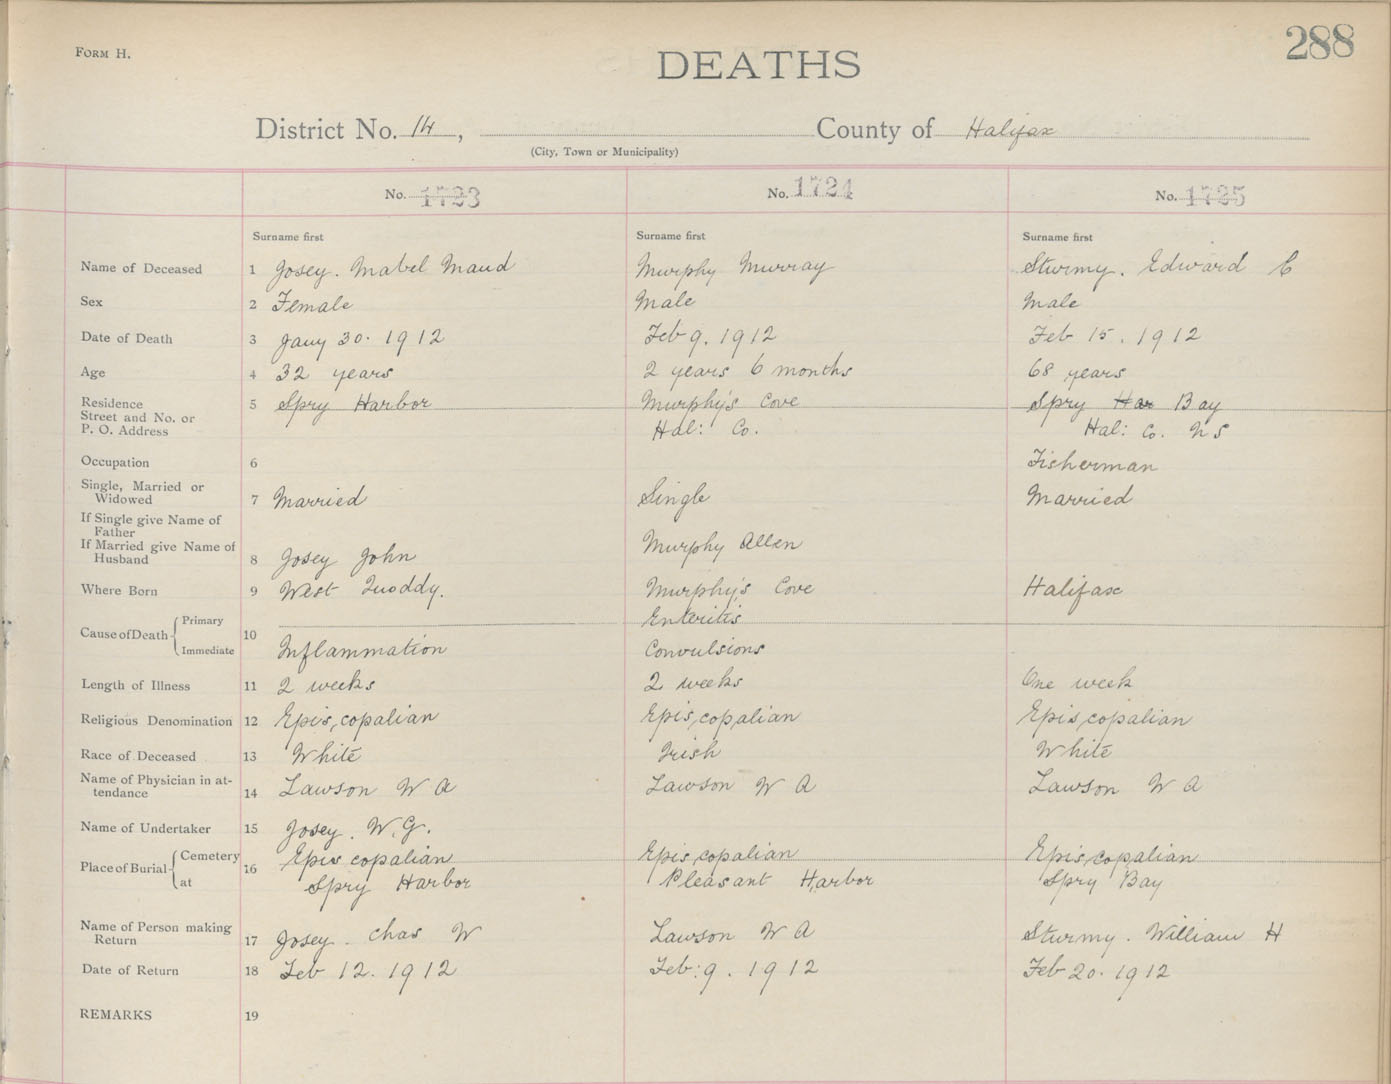 FORM H.
DEATHS
288
District No. 14, County of Halifax
(City, Town or Municipality)
No. 1723 No. 1724 No. 1725
Surname first Surname first Surname first
Name of Deceased 1 Josey. Mabel Maud Murphy Murray Sturmy. Edward C
Sex 2 Female Male Male
Date of Death 3 Jany 30. 1912 Feb 9. 1912 Feb 15. 1912
Age 4 32 years 2 years 6 months 68 years
Residence 5 Spry Harbor Murphy's Cove Spry Har Bay
Street and No. or
P. O. Address Hal: Co. Hal: Co. NS
Occupation 6 Fisherman
Single, Married or
Widowed 7 Married Single Married
If Single give Name of
Father
If Married give Name of Murphy Allen
Husband 8 Josey John
Where Born 9 West Quoddy. Murphy's Cove Halifax
Cause of Death Primary 10 Enteritis
Immediate Inflammation Convulsions
Length of Illness 11 2 weeks 2 weeks One week
Religious Denomination 12 Episcopalian Episcopalian Episcopalian
Race of Deceased 13 White Irish White
Name of Physician in at-
tendance 14 Lawson W A Lawson W A Lawson W A
Name of Undertaker 15 Josey. W. G.
Place of Burial Cemetery 16 Episcopalian Episcopalian Episcopalian
at Spry Harbor Pleasant Harbor Spry Bay
Name of Person making
Return 17 Josey. Chas W Lawson W A Sturmy. William H
Date of Return 18 Feb 12. 1912 Feb: 9. 1912 Feb 20. 1912
REMARKS 19